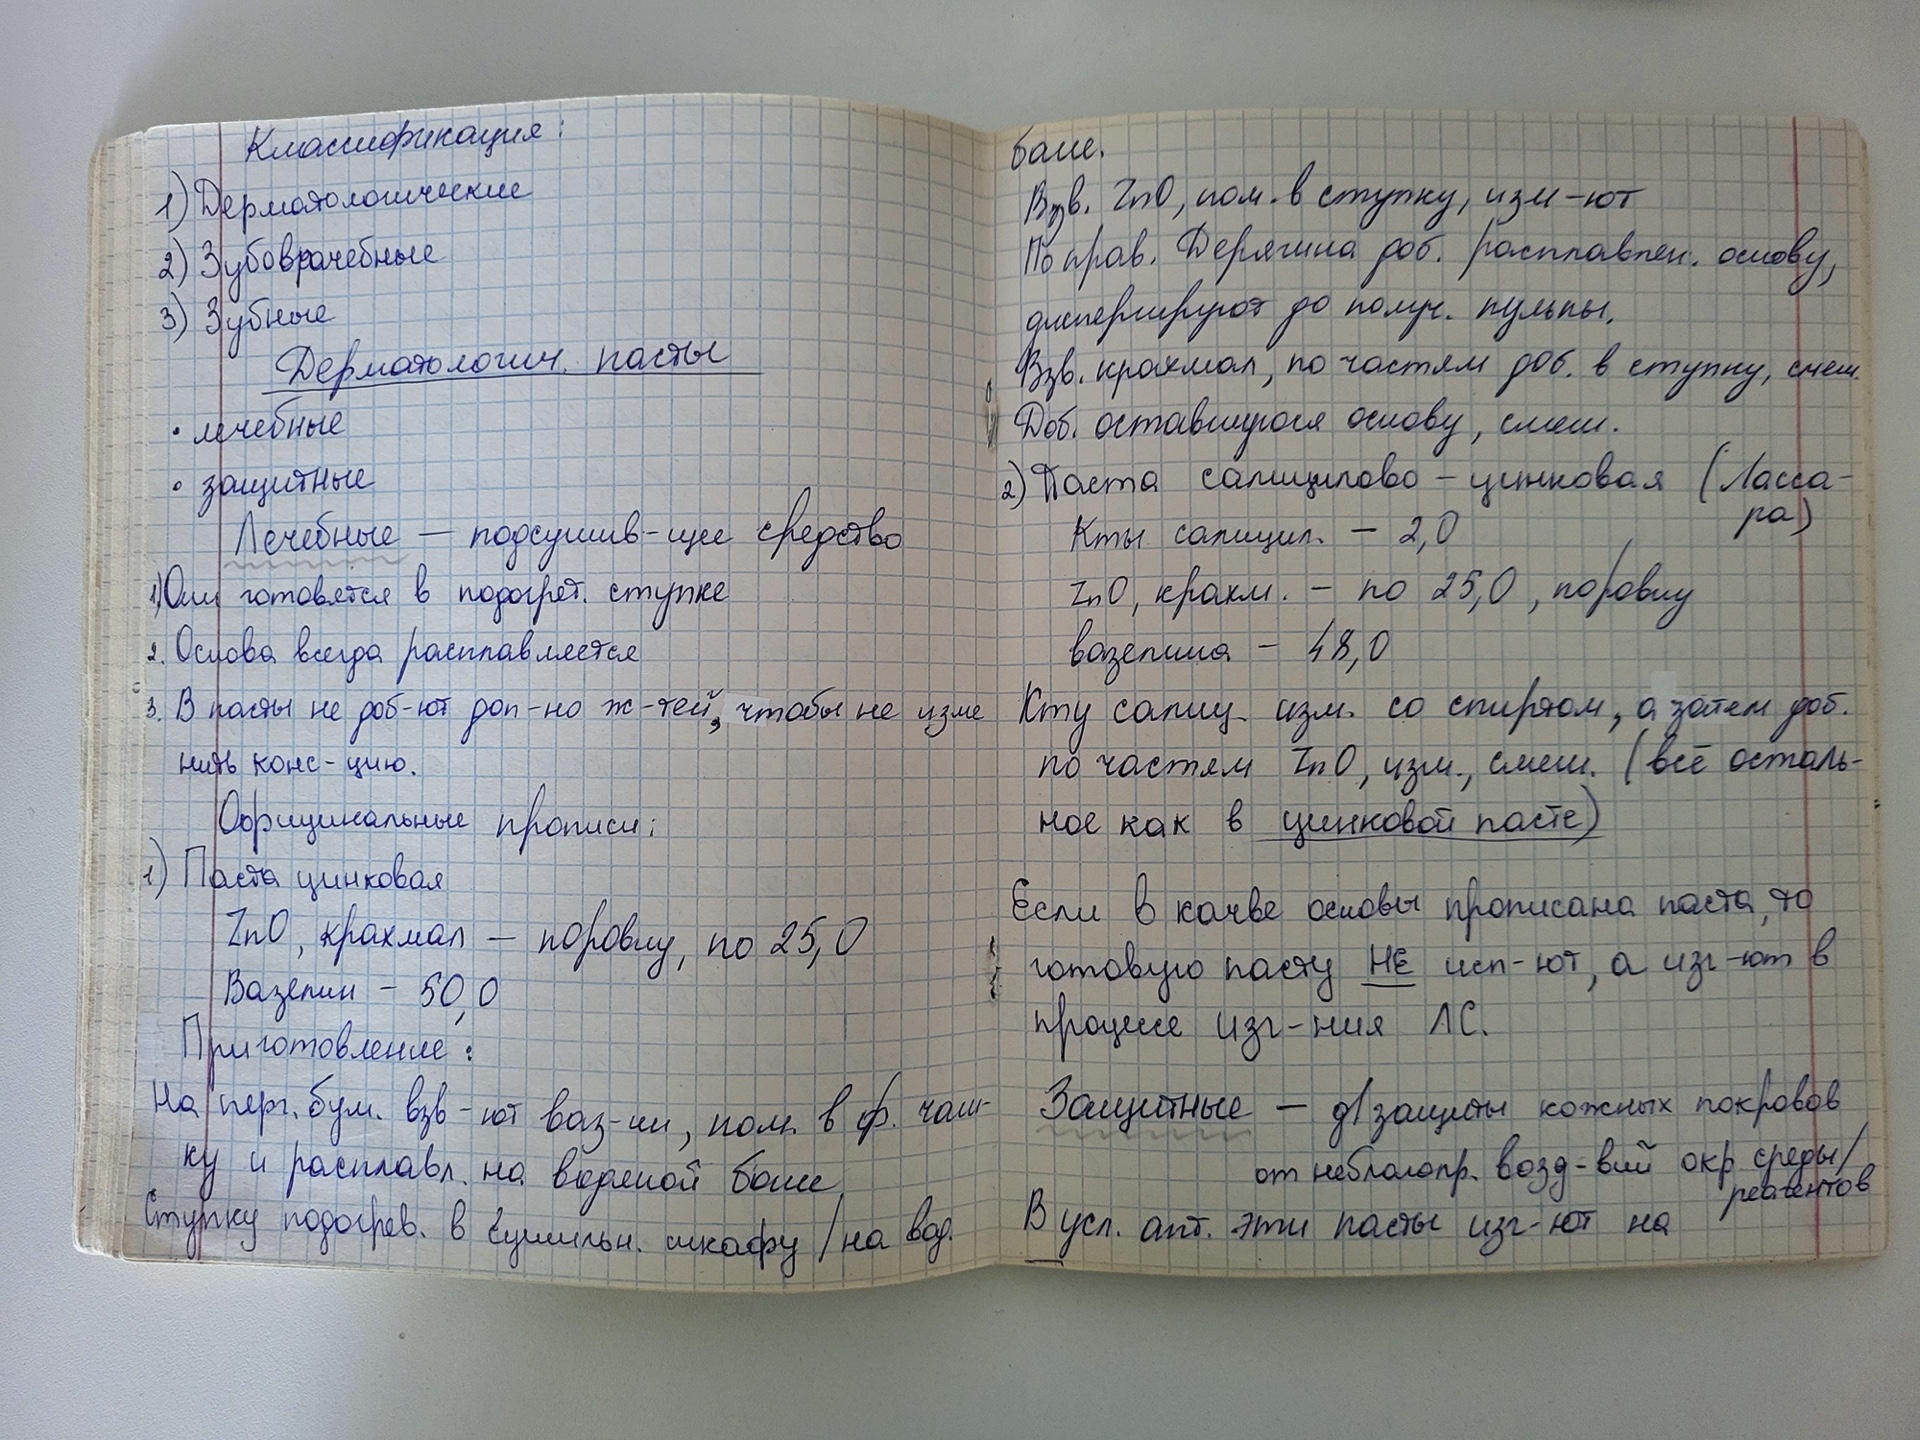 Классификация:
1) Дерматологические
2) Зубоврачебные
3) Зубные
Дерматологич. пасты
• лечебные
• защитные
Лечебные — подсушив-щее средство
1) Они готовятся в подогрет. ступке
2. Основа всегда расплавляется
3. В пасты не доб-ют доп-но ж-тей, чтобы не изме
нить конс-цию.
Официнальные прописи:
1) Паста цинковая
ZnO, крахмал — поровну, по 25,0
Вазелин – 50,0
Приготовление:
На перг. бум. взв-ют ваз-ин, пом. в ф. чаш-
ку и расплавл. на водяной бане
Ступку подогрев. в сушильн. шкафу / на вод.
бане.
Взв. ZnO, пом. в ступку, изм-ют
По прав. Дерягина доб. расплавлен. основу,
диспергируют до получ. пульпы.
Взв. крахмал, по частям доб. в ступку, смеш.
Доб. оставшуюся основу, смеш.
2) Паста салицилово – цинковая (Ласса-
ра)
Кты салицил. – 2,0
ZnO, крахм. – по 25,0, поровну
вазелина – 48,0
Кту салиц. изм. со спиртом, а затем доб.
по частям ZnO, изм., смеш. (всё осталь-
ное как в цинковой пасте)
Если в качве основы прописана паста, то
готовую пасту НЕ исп-ют, а изг-ют в
процессе изг-ния ЛС.
Защитные – д/защиты кожных покровов
от неблагопр. возд-вий окр среды/
реагентов
В усл. апт. эти пасты изг-ют на